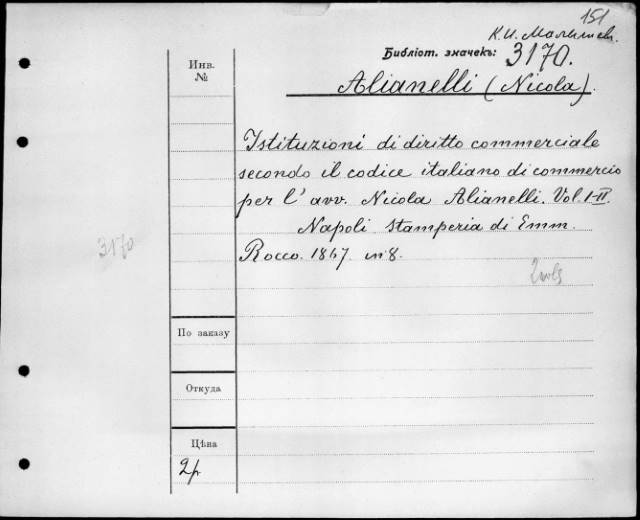 151
К. И. Малышев.
Библіот. значекъ: 3170.
Инв.
№
Alianelli (Nicola).
Istituzioni di diritto commerciale
secondo il codice italiano di commercio
per l' avv. Nicola Alianelli. Vol. I-II.
Napoli stamperia di Emm.
3170
Rocco. 1867. in 8.
По заказу
Откуда
Цѣна
2р